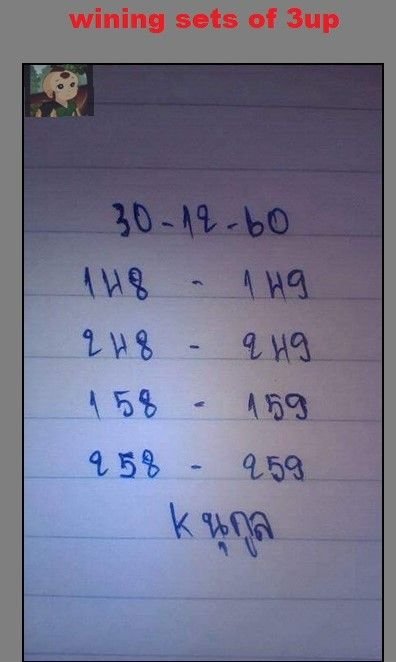 wining sets of 3up
30-12-60
148 - 149
248 - 249
158 - 159
258 - 259
K นุกูล